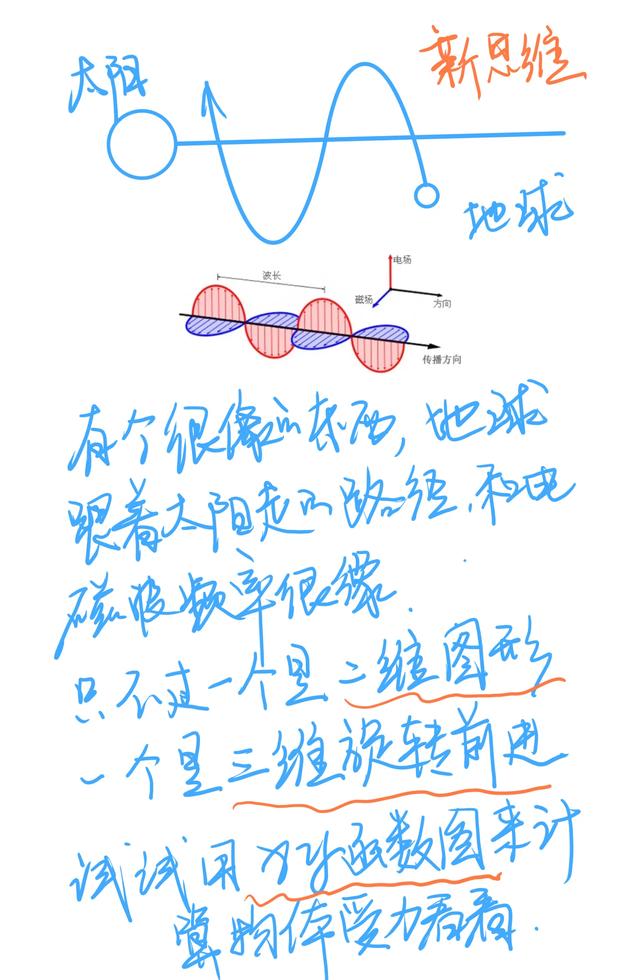 新思维
太阳
地球
电场
波长
磁场
方向
传播方向
有个很像的东西,地球
跟着太阳走的路径,和电
磁波频率很像.
只不过一个是二维图形
一个是三维旋转前进
试试用xy函数图来计
算物体受力看看.